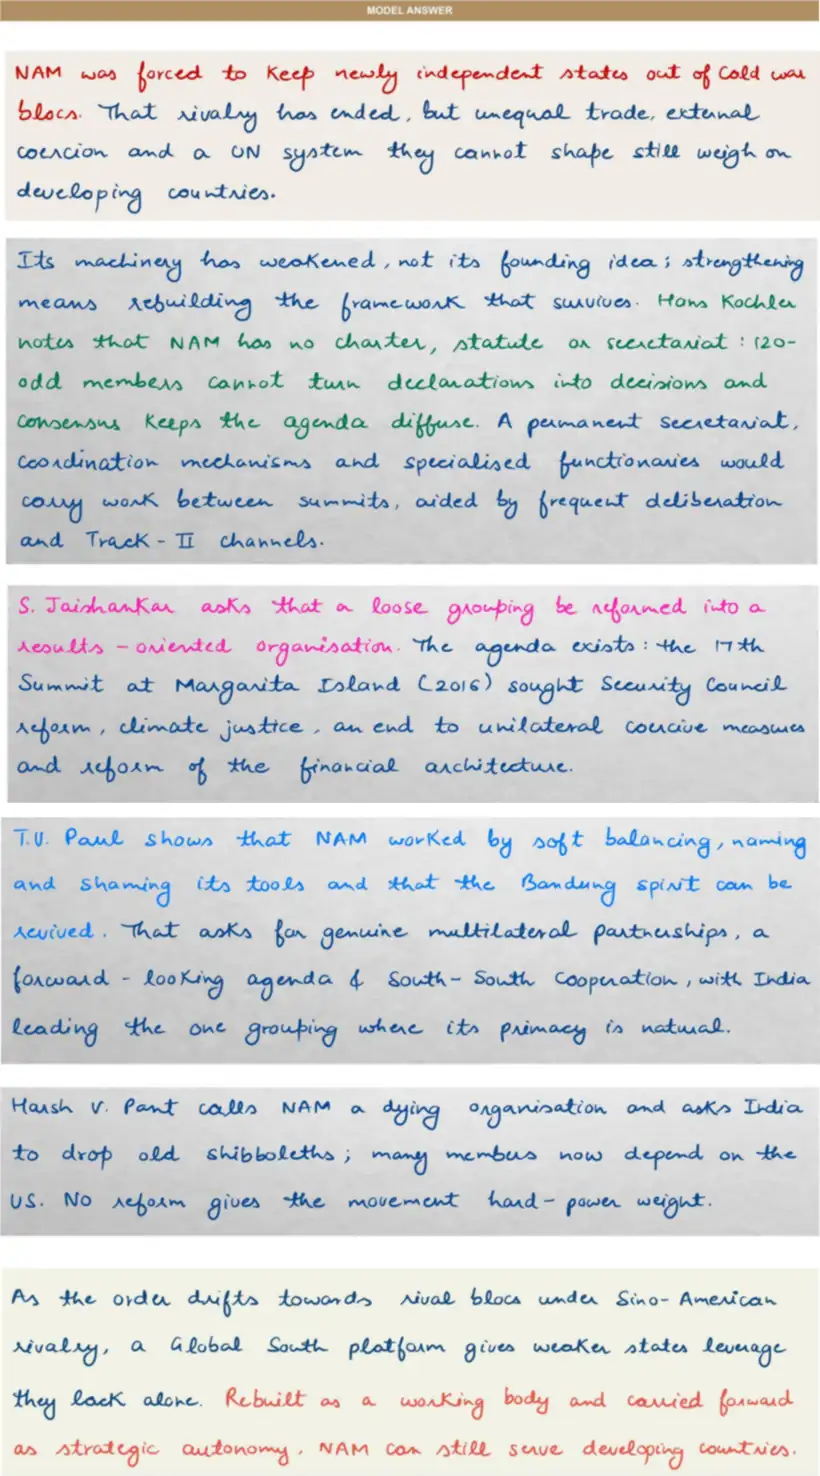 MODEL ANSWER
NAM was forced to keep newly independent states out of Cold war
blocs. That rivalry has ended, but unequal trade, external
coercion and a UN system they cannot shape still weigh on
developing countries.
Its machinery has weakened, not its founding idea; strengthening
means rebuilding the framework that survives. Hans Kochler
notes that NAM has no charter, statute or secretariat: 120-
odd members cannot turn declarations into decisions and
consensus keeps the agenda diffuse. A permanent secretariat,
coordination mechanisms and specialised functionaries would
carry work between summits, aided by frequent deliberation
and Track-II channels.
S. Jaishankar asks that a loose grouping be reformed into a
results-oriented organisation. The agenda exists: the 17th
Summit at Margarita Island (2016) sought Security Council
reform, climate justice, an end to unilateral coercive measures
and reform of the financial architecture.
T.V. Paul shows that NAM worked by soft balancing, naming
and shaming its tools and that the Bandung spirit can be
revived. That asks for genuine multilateral partnerships, a
forward-looking agenda & South-South Cooperation, with India
leading the one grouping where its primacy is natural.
Harsh V. Pant calls NAM a dying organisation and asks India
to drop old shibboleths; many members now depend on the
US. No reform gives the movement hard-power weight.
As the order drifts towards rival blocs under Sino-American
rivalry, a Global South platform gives weaker states leverage
they lack alone. Rebuilt as a working body and carried forward
as strategic autonomy, NAM can still serve developing countries.